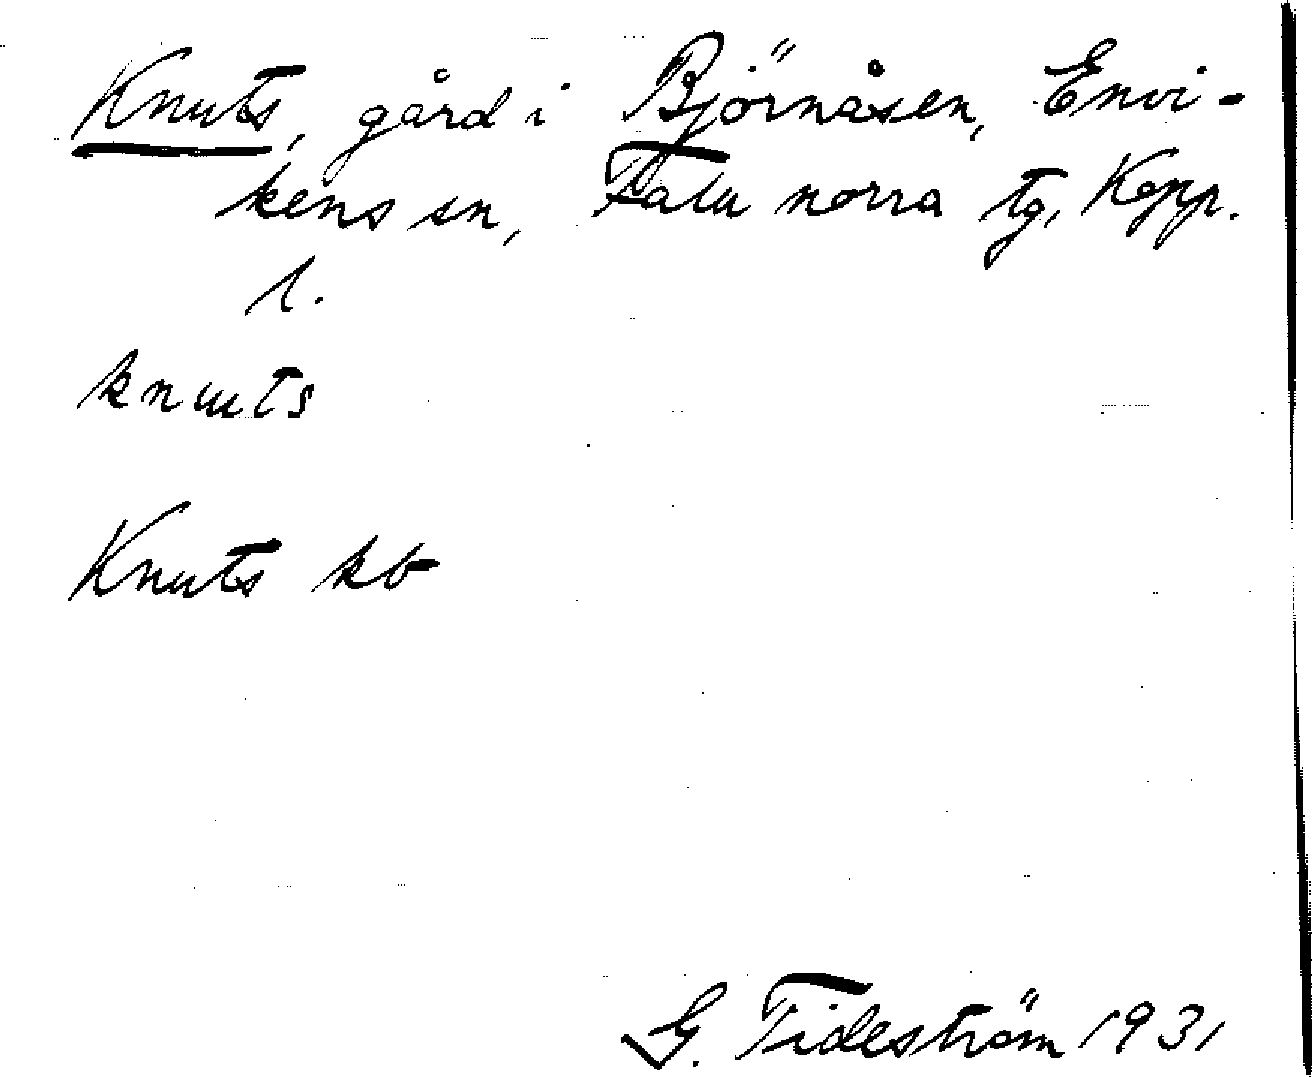 Knuts, gård i Björnåsen, Envi-
kens sn, Falu norra tg, Kopp.
l.
knuts
Knuts kb
G. Tideström 1931